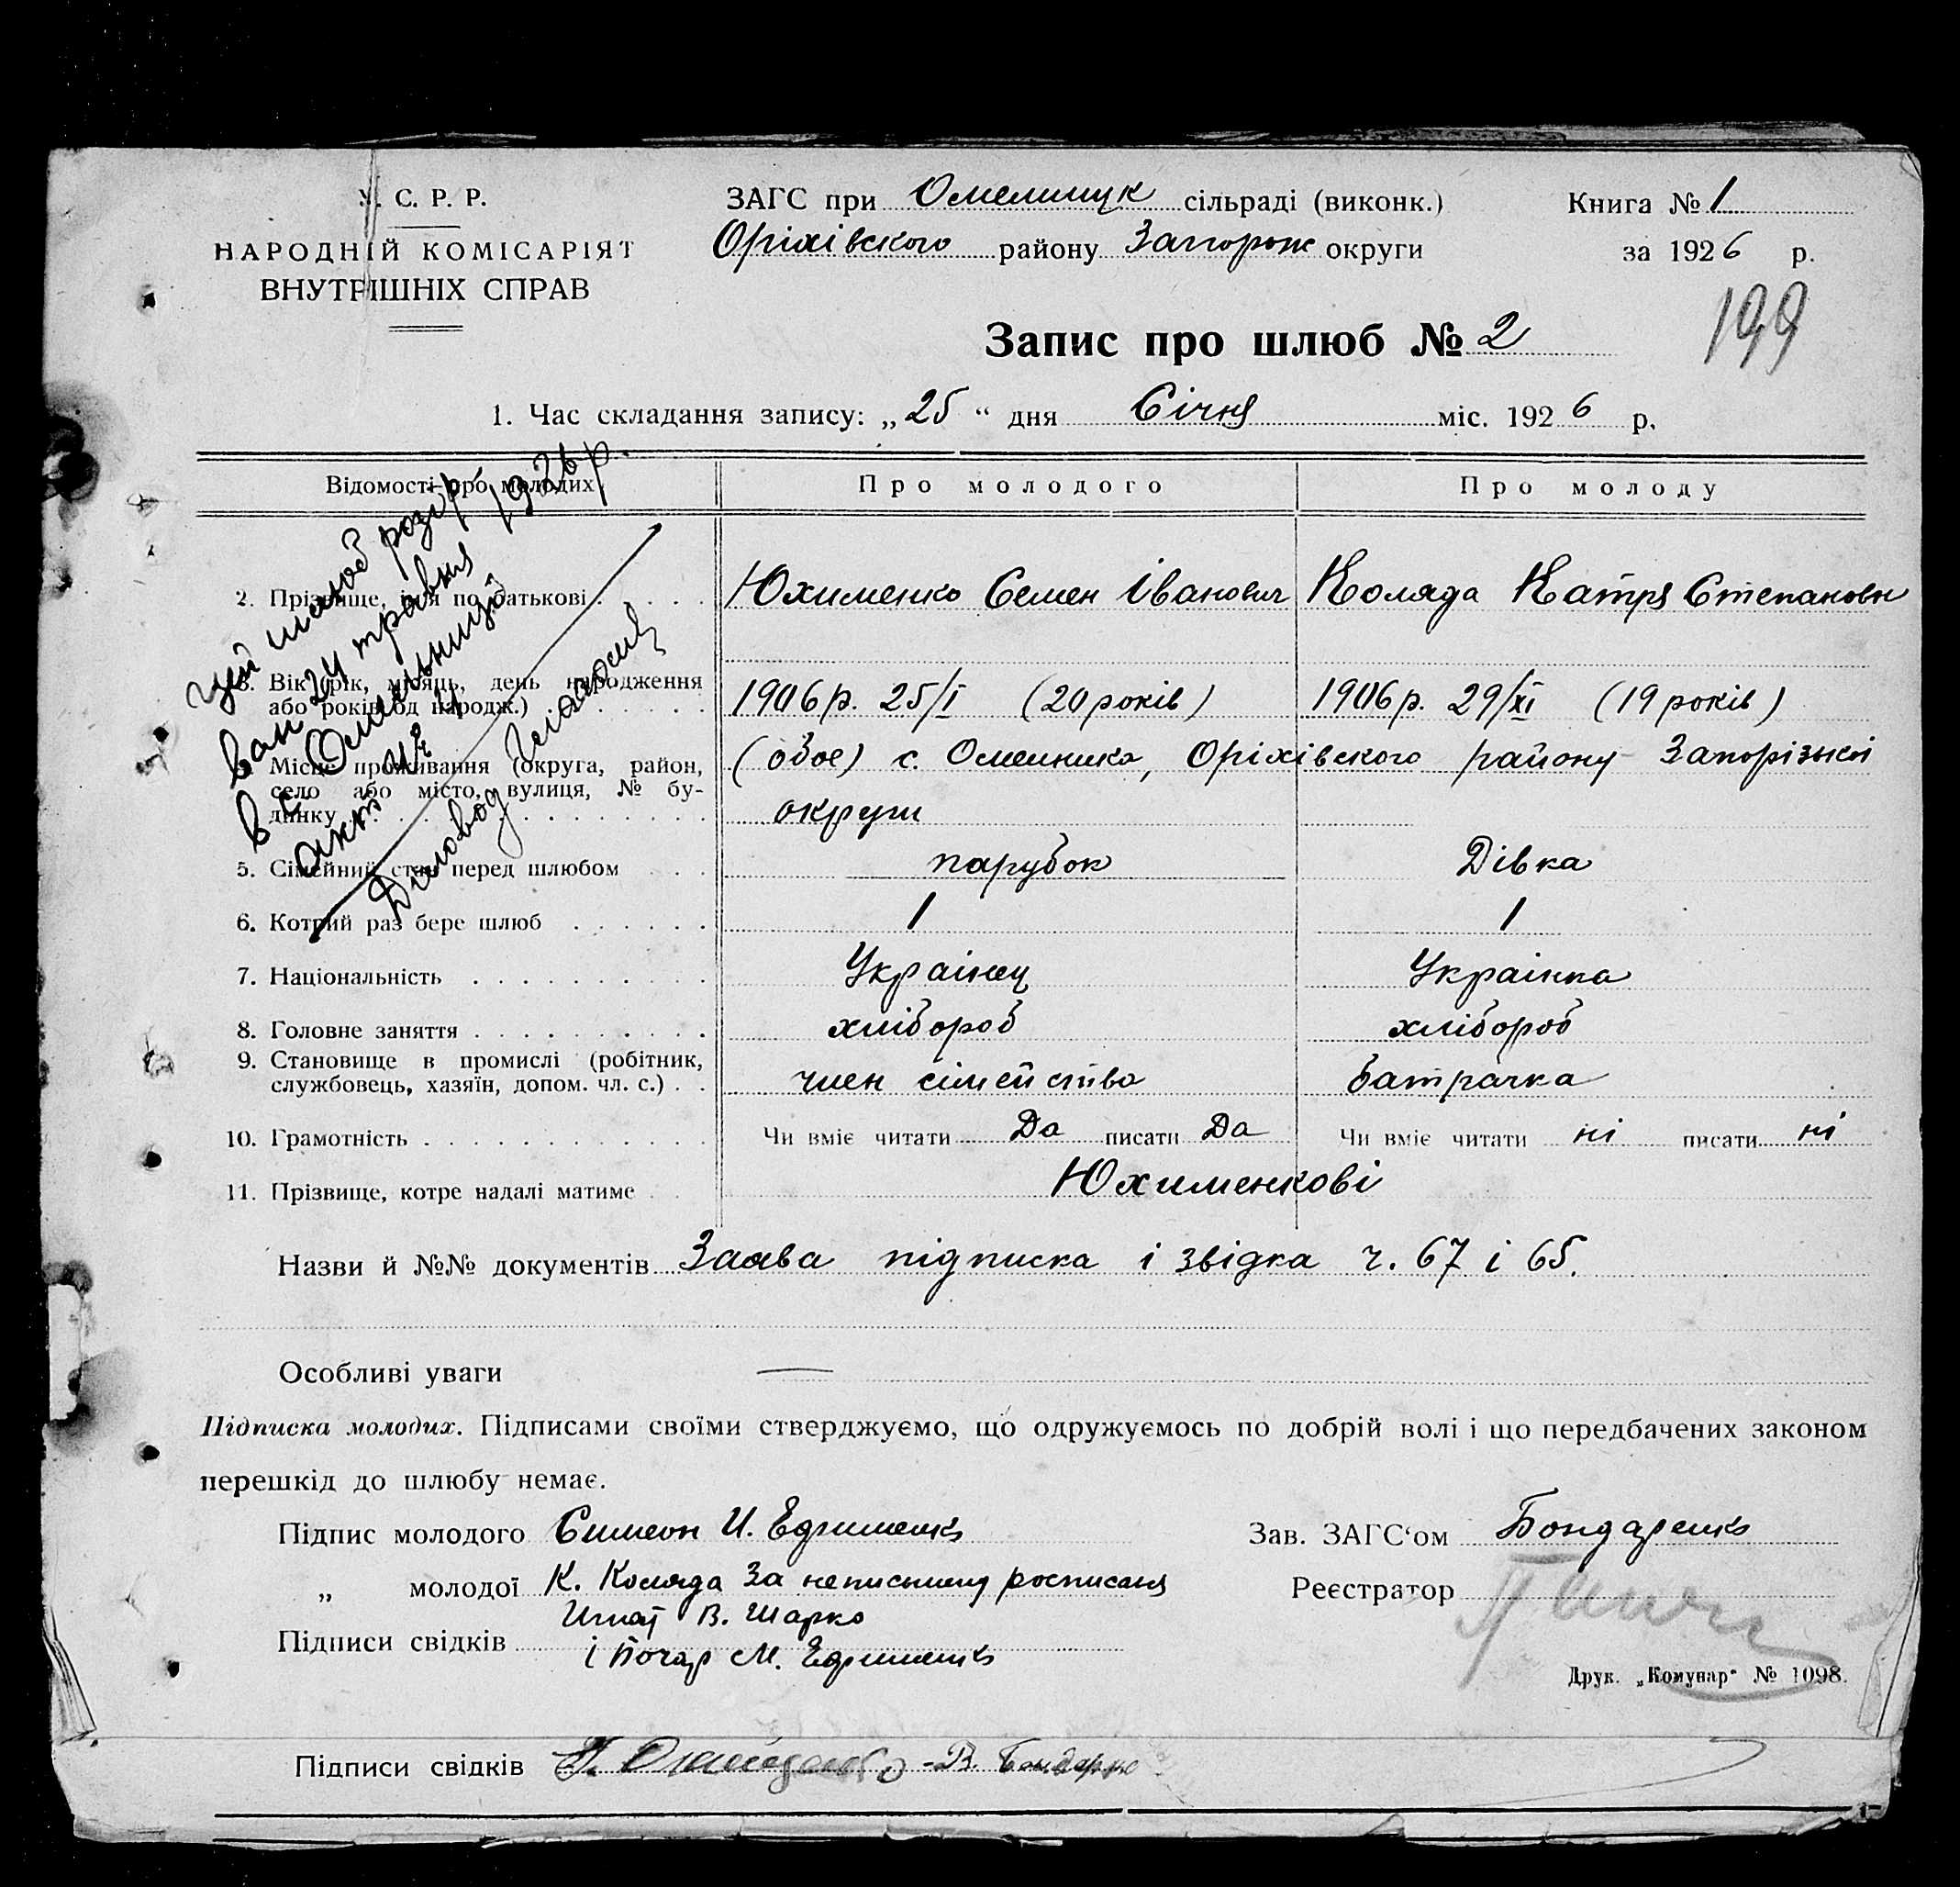 У. С. Р. Р.
НАРОДНІЙ КОМІСАРІЯТ
ВНУТРІШНІХ СПРАВ
ЗАГС при Омелницк сільраді (виконк.)
Оріхівського району Запорож округи
Книга № 1
за 1926 р.
199
Запис про шлюб № 2
1. Час складання запису: „25“ дня Січня міс. 1926 р.
Відомості про молодих
Про молодого
Про молоду
цей шлюб розір
ван 24 травня 1926 р.
в с. Омельницкі
акт № 4
Діловод
2. Прізвище, ім'я по батькові
Юхименко Семен Іванович
Коляда Катря Степановн
3. Вік (рік, місяць, день народження
або років од народж.)
1906 р. 25/I (20 років)
1906 р. 29/XI (19 років)
4. Місце проживання (округа, район,
село або місто, вулиця, № бу-
динку
(обоє) с. Омелника, Оріхівского району Запорізької
округи
5. Сімейний стан перед шлюбом
парубок
Дівка
6. Котрий раз бере шлюб
1
1
7. Національність
Украінец
Украінка
8. Головне заняття
хлібороб
хлібороб
9. Становище в промислі (робітник,
службовець, хазяїн, допом. чл. с.)
член сімейства
батрачка
10. Грамотність
Чи вміє читати Да писати Да
Чи вміє читати ні писати ні
11. Прізвище, котре надалі матиме
Юхименкові
Назви й №№ документів Заява підписка і звідка ч. 67 і 65.
Особливі уваги —
Підписка молодих. Підписами своїми стверджуємо, що одружуємось по добрій волі і що передбачених законом
перешкід до шлюбу немає.
Підпис молодого Симеон И. Ефименко
Зав. ЗАГС‘ом Бондаренко
„ молодої К. Коляда За неписьмену росписався
Реєстратор
Игнат В. Шарко
Підписи свідків
і М. Ефименко
Друк. „Комунар“ № 1098.
Підписи свідків В. Бондарнко